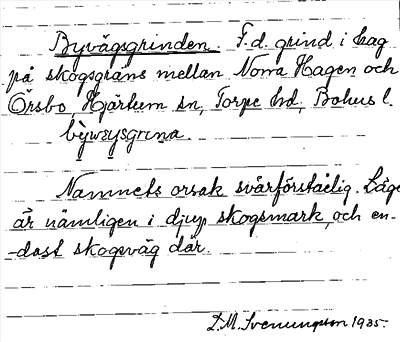 Byvägsgrinden. F.d. grind i hag
på skogsgräns mellan Norra Hagen och
Örsbo, Hjärtum sn, Torpe hd, Bohus l.
býwsysgrına.
Namnets orsak svårförståelig. Läge
är nämligen i djup skogsmark, och en-
-dast skogsväg där.
D.M. Svenungson 1935.